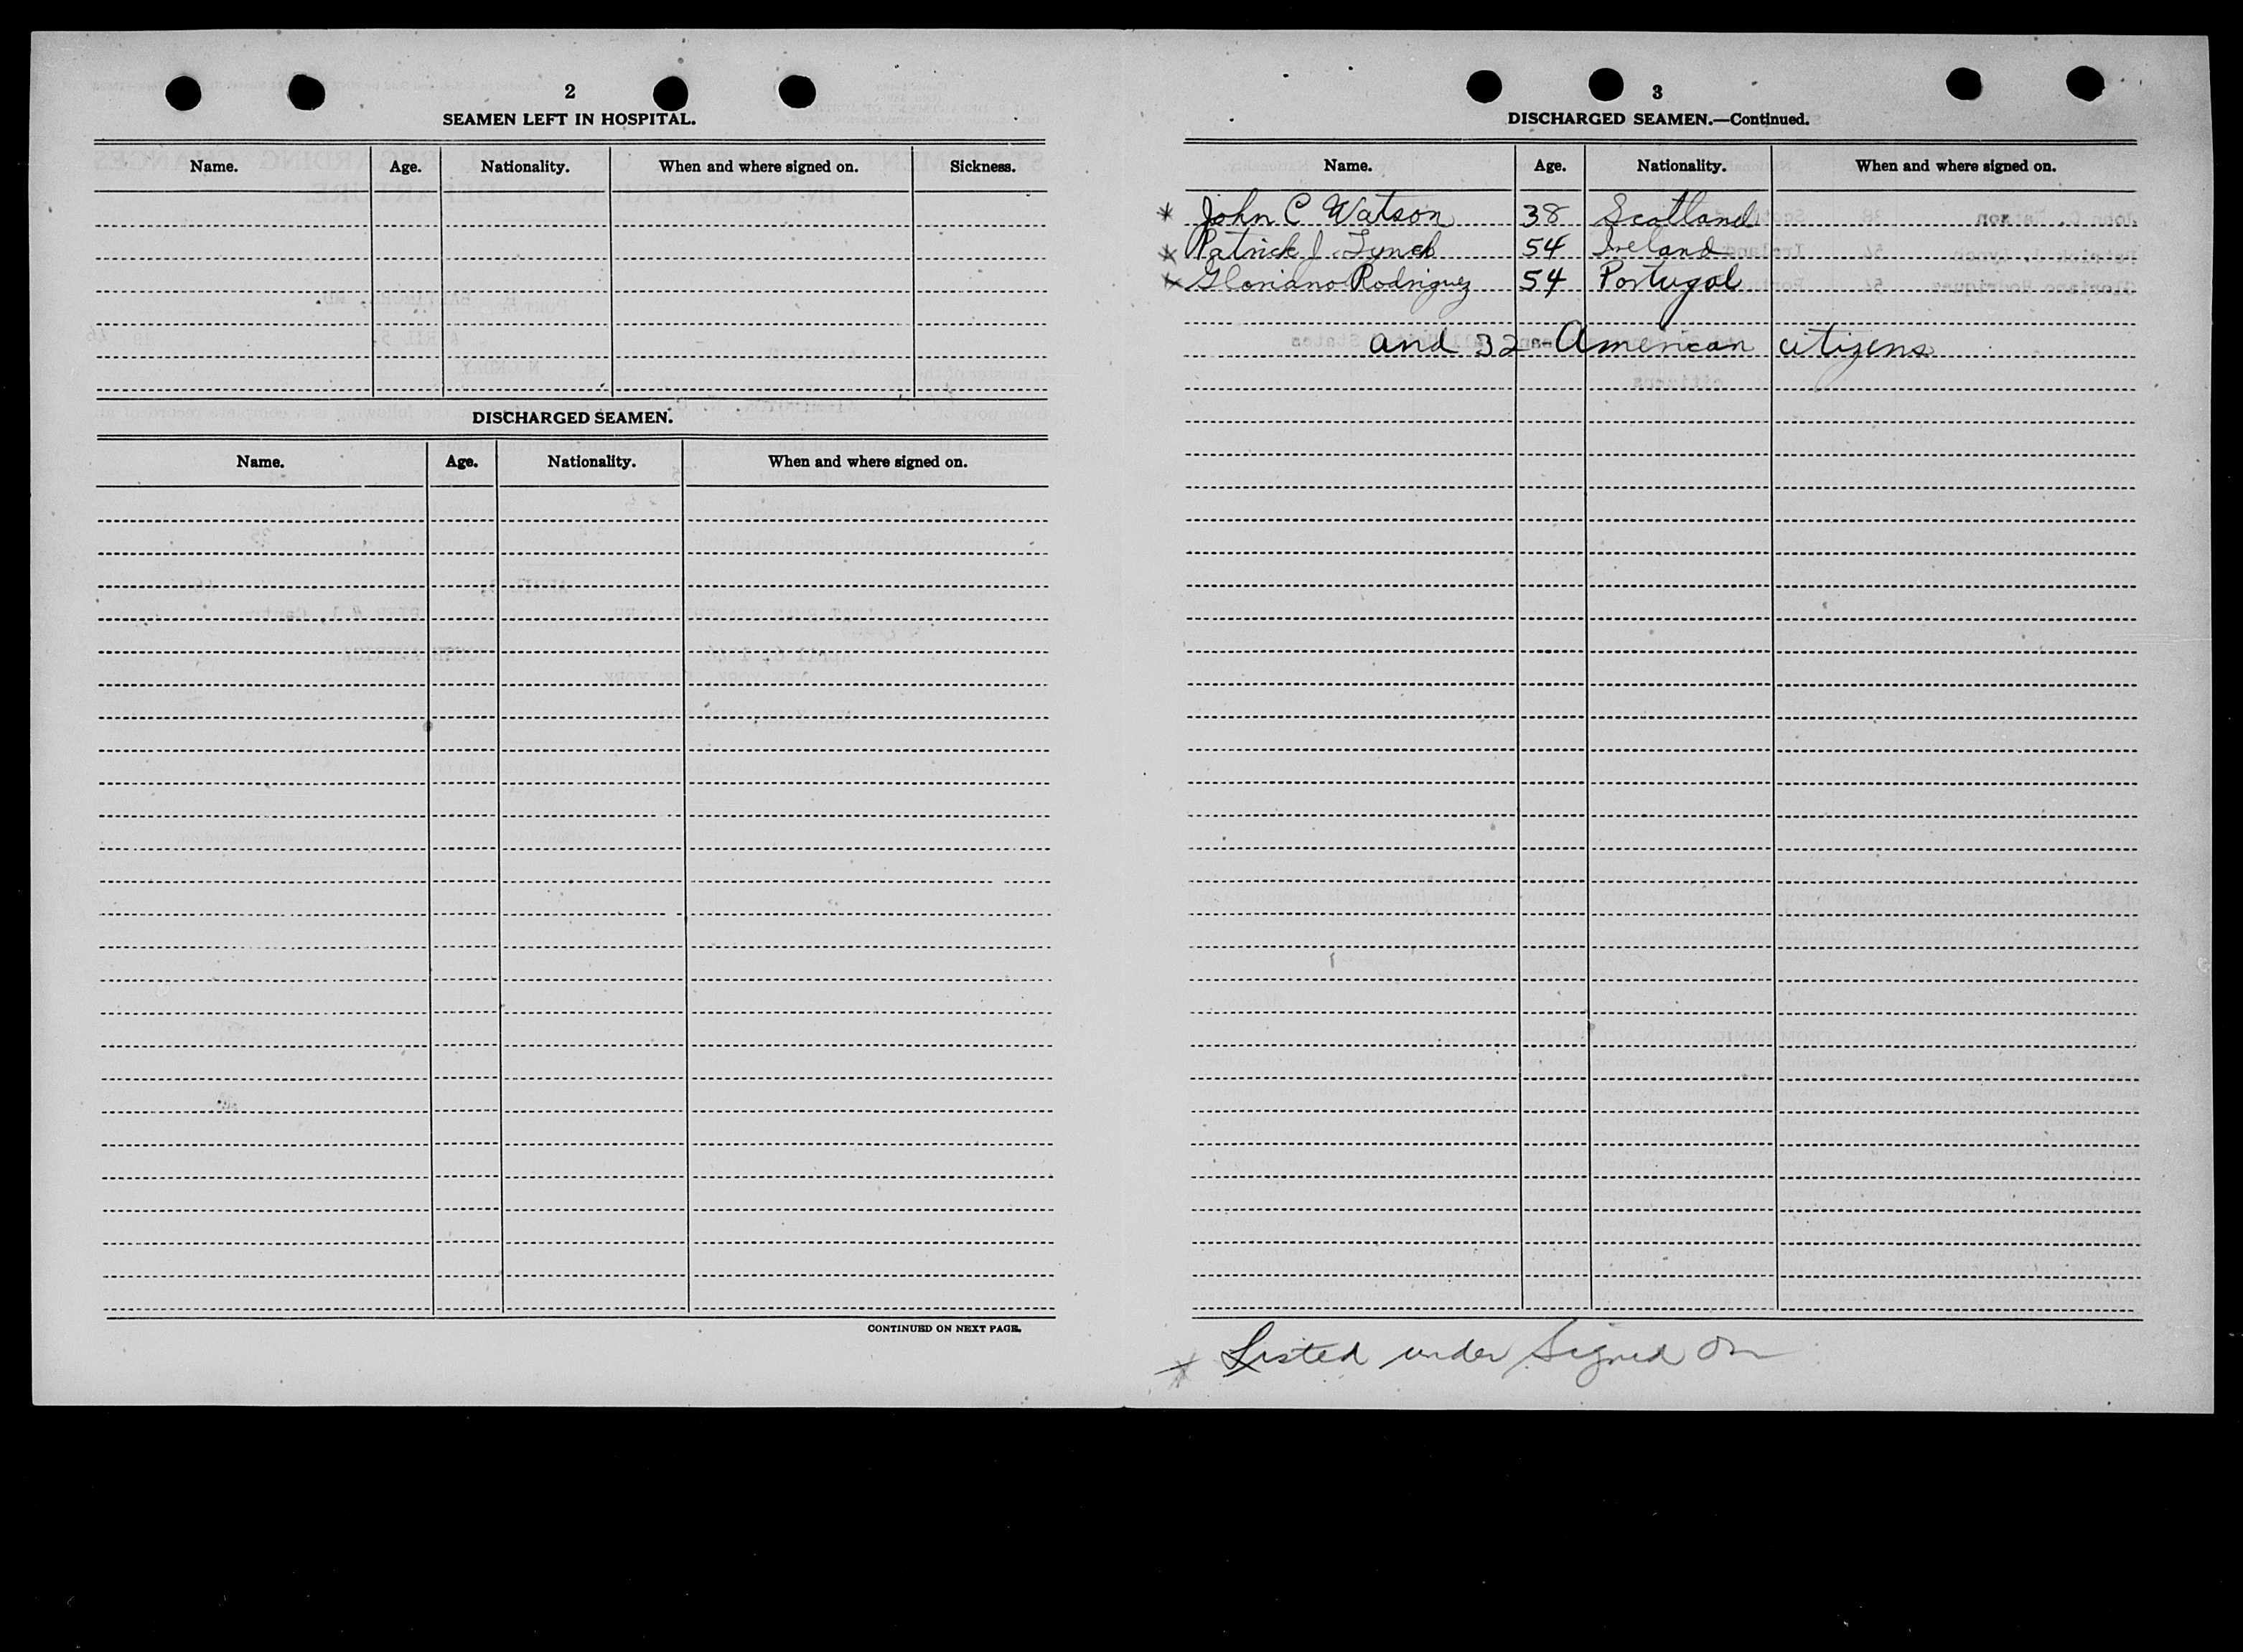 2
SEAMEN LEFT IN HOSPITAL.
Name. Age. Nationality. When and where signed on. Sickness.
DISCHARGED SEAMEN.
Name. Age. Nationality. When and where signed on.
CONTINUED ON NEXT PAGE.
3
DISCHARGED SEAMEN.—Continued.
Name. Age. Nationality. When and where signed on.
* John C Watson 38 Scotland
* Patrick J. Lynch 54 Ireland
* Gloriano Rodriguez 54 Portugal
and 32 American citizens
* Listed under Signed On